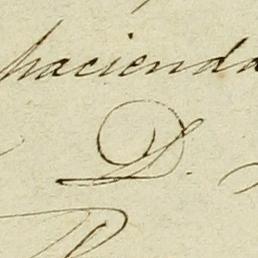 hacienda
D.